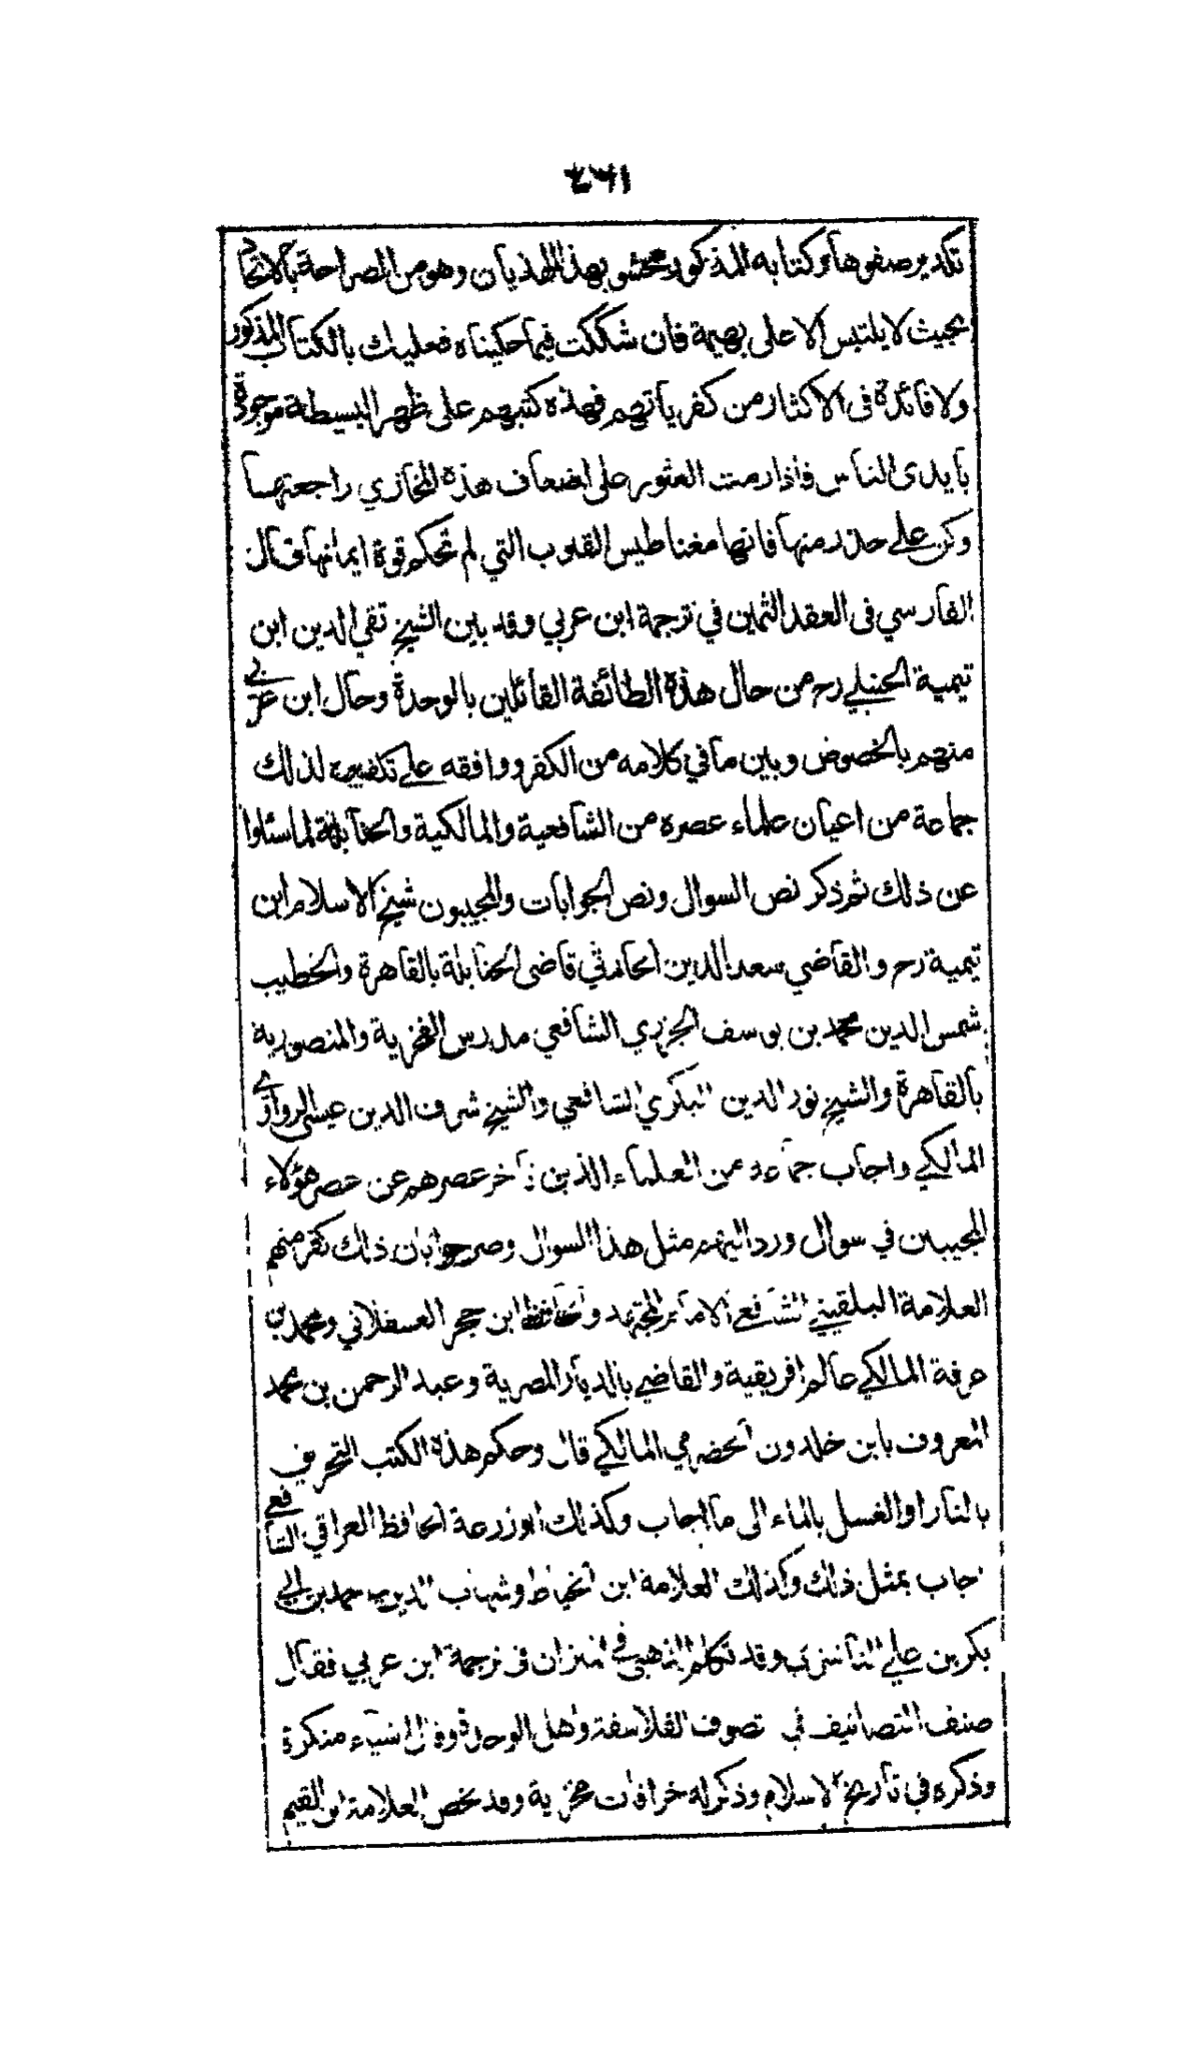 تكدير صفوها وكتابه المذكور محشو بهذا الهذيان وهو من الصراحة بالاتحاد
بحيث لا يلتبس الا على بهيمة فان شككت فيما حكيناه فعليك بالكتاب المذكور
ولا فائدة في الاكثار من كفرياتهم فهذه كتبهم على ظهر البسيطة موجودة
بايدى الناس فاذا رمت العثور على اضعاف هذه المخازي راجعتها
وكن على حذر منها فانها مغناطيس القلوب التي لم تحكم قوة ايمانها قال
الفارسي فى العقد الثمين في ترجمة ابن عربي وقد بين الشيخ تقي الدين ابن
تيمية الحنبلي رح من حال هذه الطائفة القائلين بالوحدة وحال ابن عربي
منهم بالخصوص وبين ما في كلامه من الكفر ووافقه على تكفيره لذلك
جماعة من اعيان علماء عصره من الشافعية والمالكية والحنابلة لما سئلوا
عن ذلك ثم ذكر نص السوال ونص الجوابات والمجيبون شيخ الاسلام ابن
تيمية رح والقاضي سعد الدين الحارثي قاضى الحنابلة بالقاهرة والخطيب
شمس الدين محمد بن يوسف الجزري الشافعي مدرس الفخرية والمنصورية
بالقاهرة والشيخ نور الدين البكري الشافعي والشيخ شرف الدين عيسى الزواوي
المالكي واجاب جماعة من العلماء الذين تاخر عصرهم عن عصر هؤلاء
المجيبين في سوال ورد اليهم مثل هذا السوال وصرحوا بان ذلك كفر منهم
العلامة البلقيني الشافعي الامام المجتهد والحافظ ابن حجر العسقلاني ومحمد بن
عرفة المالكي عالم افريقية والقاضي بالديار المصرية وعبد الرحمن بن محمد
المعروف بابن خلدون الحضرمي المالكي قال وحكم هذه الكتب التحريق
بالنار او الغسل بالماء الى ما اجاب وكذلك ابو زرعة الحافظ العراقي الشافعي
اجاب بمثل ذلك وكذلك العلامة ابن الخياط وشهاب الدين احمد بن ابي
بكر بن علي الناشري وقد تكلم الذهبي في الميزان في ترجمة ابن عربي فقال
صنف التصانيف في تصوف الفلاسفة واهل الوحدة وقال اشياء منكرة
وذكره في تاريخ الاسلام وذكر له خرافات مخزية وقد لخص العلامة ابن القيم